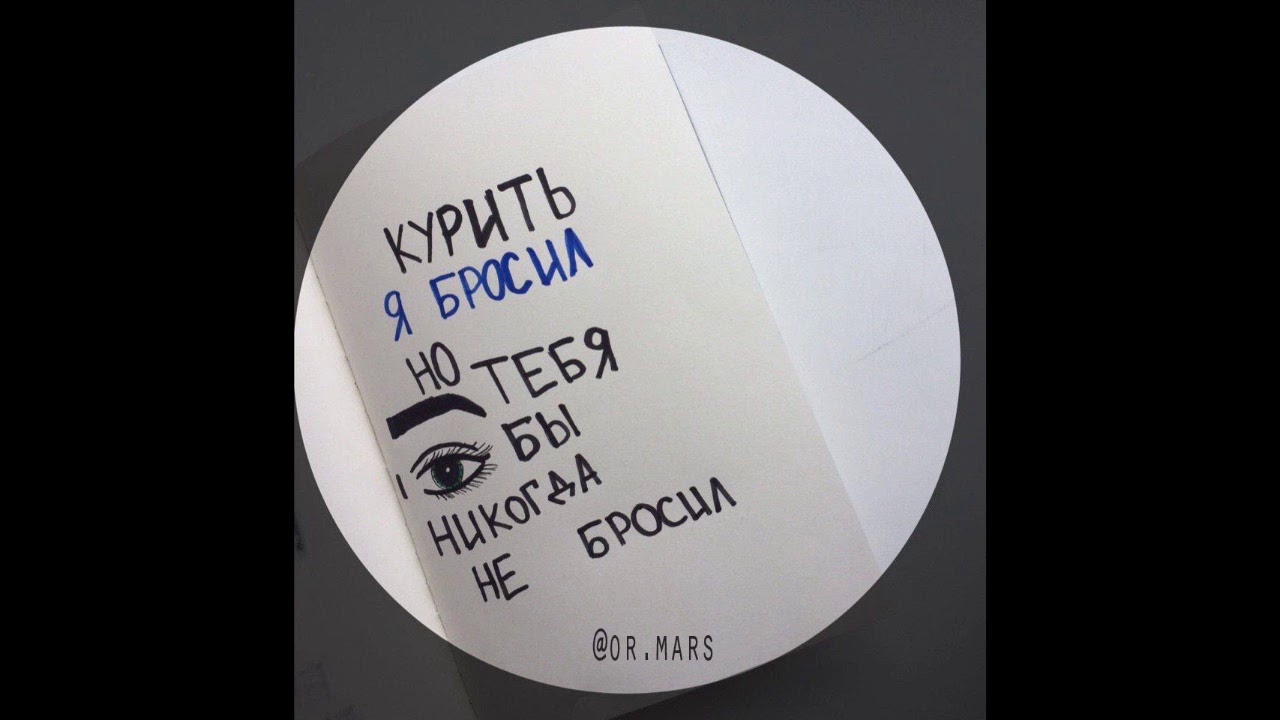 КУРИТЬ
Я БРОСИЛ
НО ТЕБЯ
БЫ
НИКОГДА
НЕ БРОСИЛ
@OR.MARS